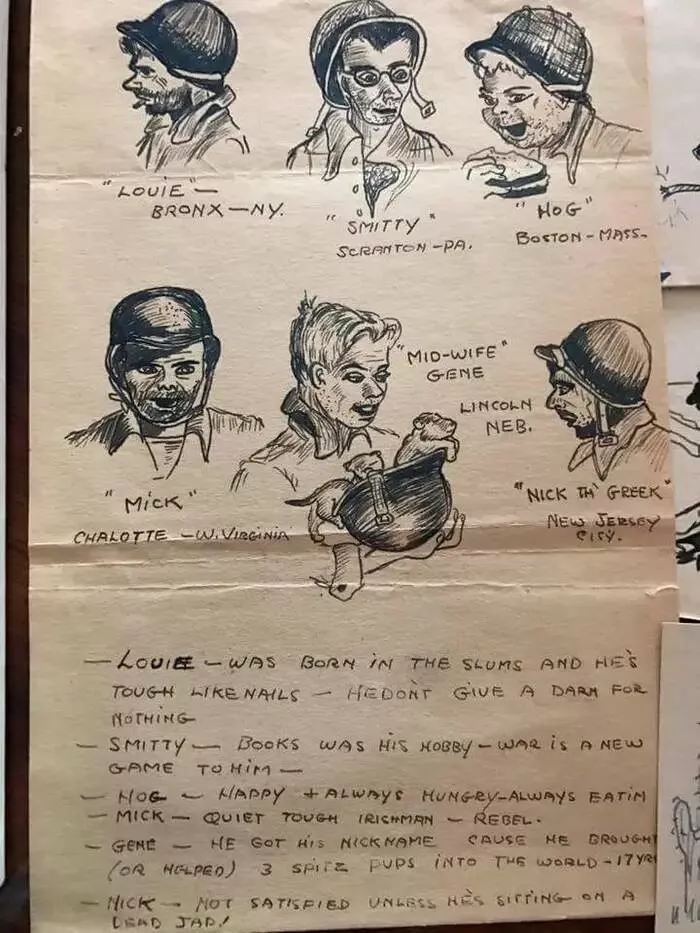 "LOUIE" —
BRONX — NY.
"SMITTY"
SCRANTON - PA.
"HOG"
BOSTON - MASS-
"MICK"
CHALOTTE - W. VIRGINIA
"MID-WIFE"
GENE
LINCOLN
NEB.
"NICK TH' GREEK"
NEW JERSEY
CITY.
— LOUIE — WAS BORN IN THE SLUMS AND HE'S
TOUGH LIKE NAILS — HE DON'T GIVE A DARN FOR
NOTHING
— SMITTY — BOOKS WAS HIS HOBBY - WAR IS A NEW
GAME TO HIM —
— HOG — HAPPY + ALWAYS HUNGRY - ALWAYS EATIN
— MICK — QUIET TOUGH IRISHMAN — REBEL.
— GENE — HE GOT HIS NICKNAME CAUSE HE BROUGHT
(OR HELPED) 3 SPITZ PUPS INTO THE WORLD - 17 YRS
— NICK — NOT SATISFIED UNLESS HE'S SITTING ON A
DEAD JAP!